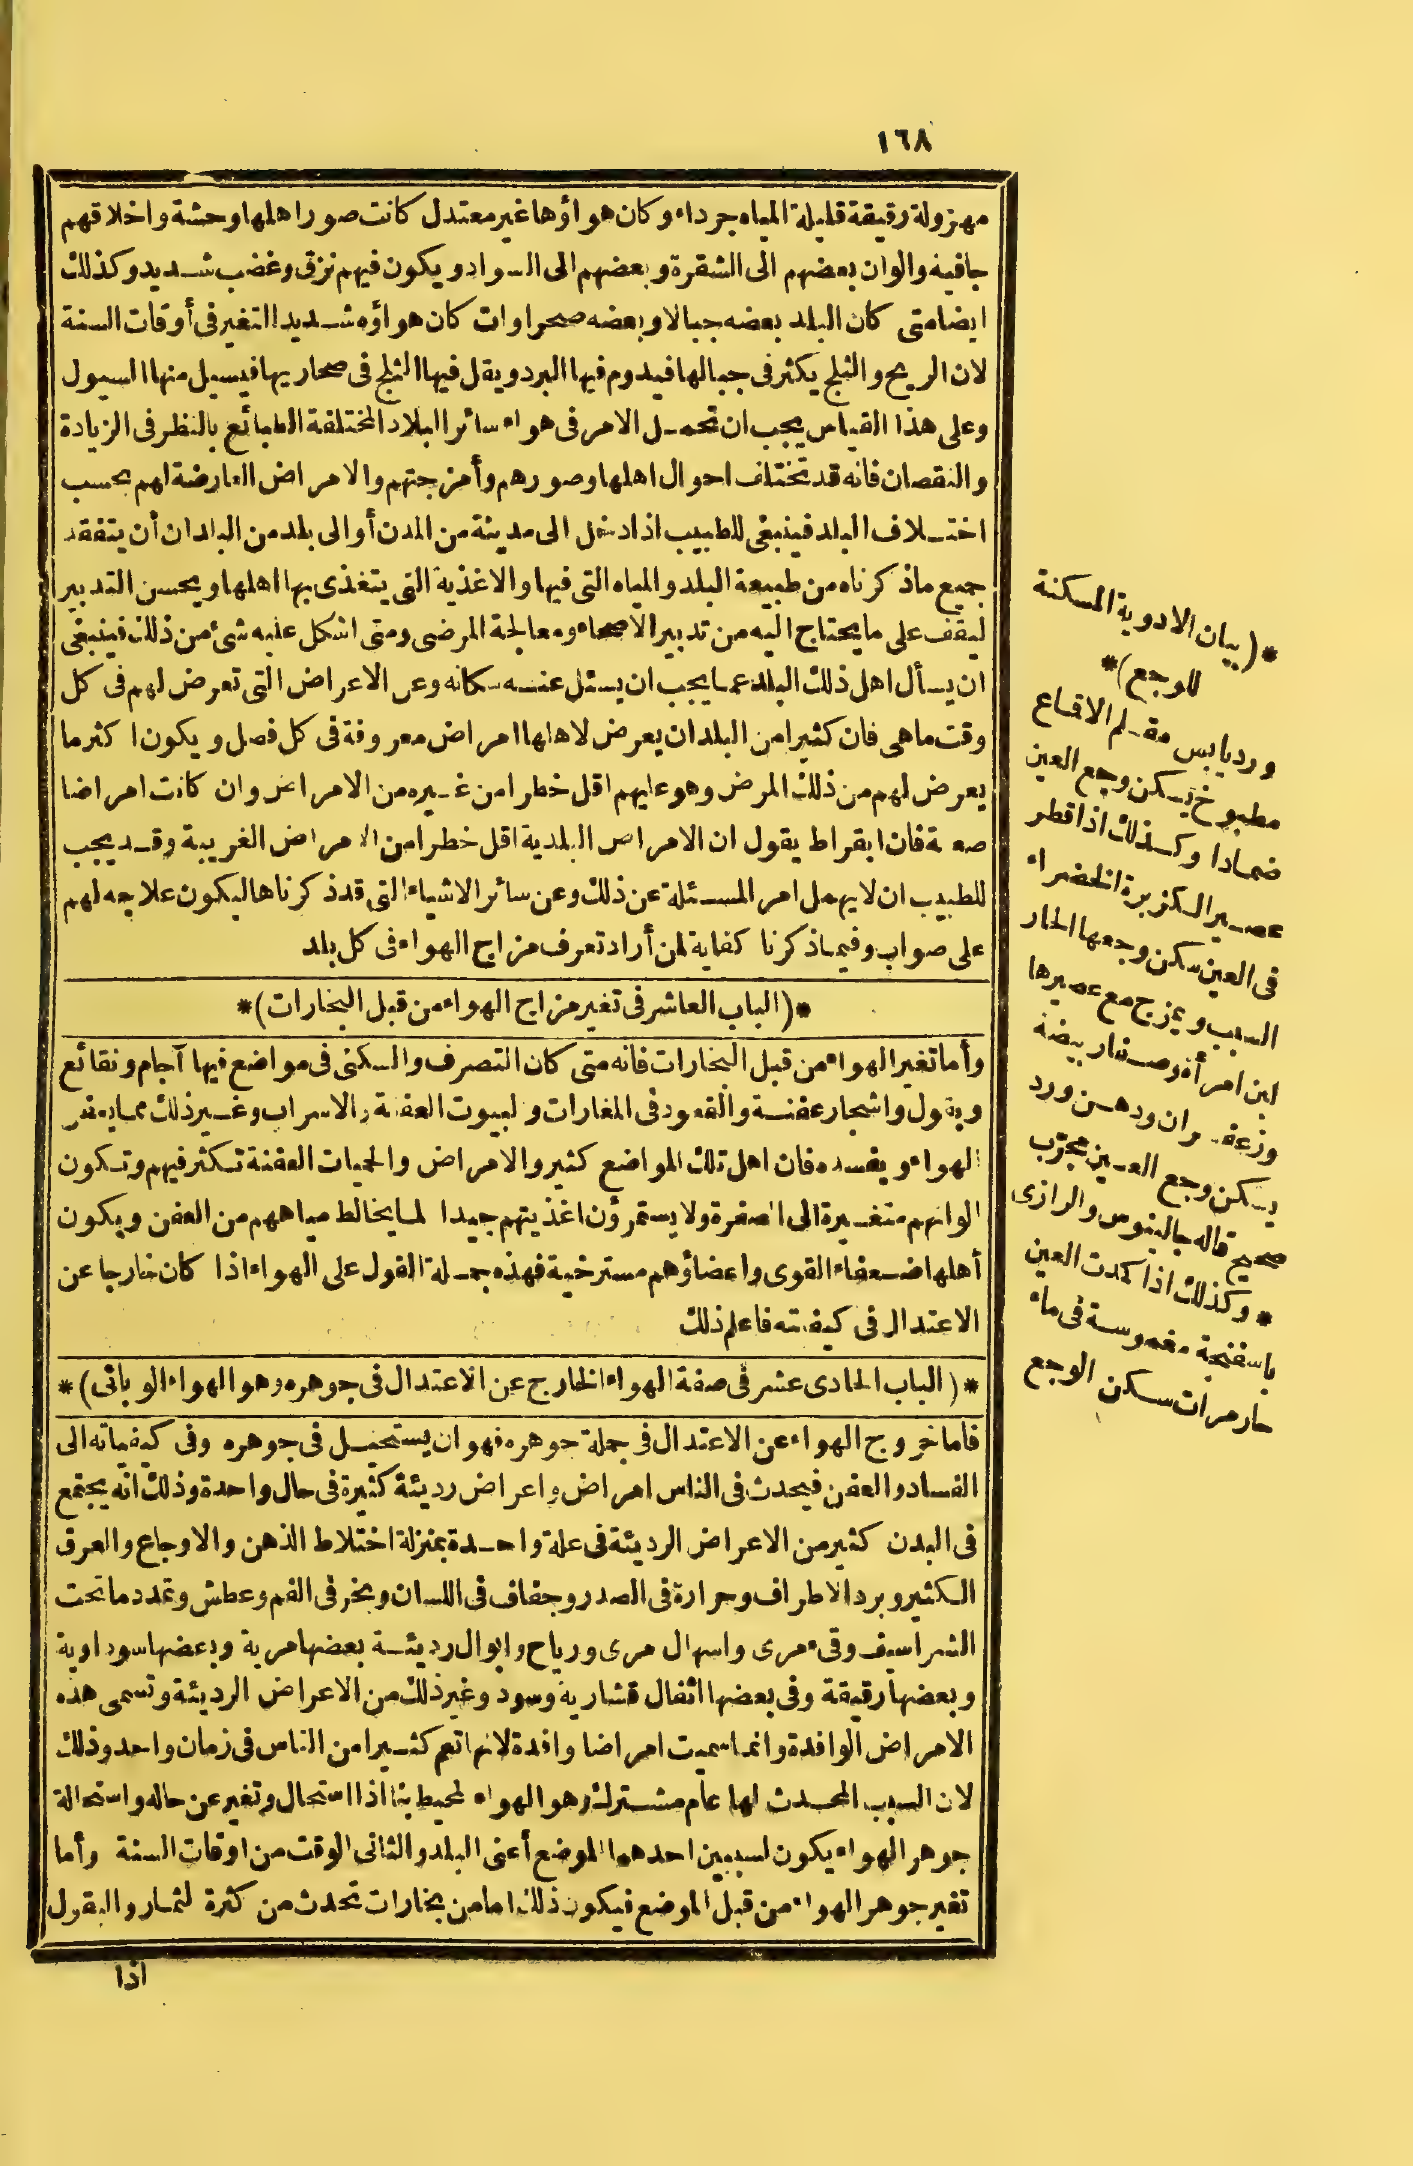 ١٦٨
مهزولة رقيقة قليلة المياه جرداء وكان هواؤها غير معتدل كانت صور اهلها وحشة واخلاقهم
جافية والوان بعضهم الى الشقرة وبعضهم الى السواد ويكون فيهم نزق وغضب شديد وكذلك
ايضا متى كان البلد بعضه جبالا وبعضه صحراوات كان هواؤه شديد التغير فى أوقات السنة
لان الريح والثلج يكثر فى جبالها فيدوم فيها البرد ويقل فيها الثلج فى صحاريها فيسيل منها السيول
وعلى هذا القياس يجب ان تحمل الامر فى هواء سائر البلاد المختلفة الطبائع بالنظر فى الزيادة
والنقصان فانه قد تختلف احوال اهلها وصورهم وأمزجتهم والامراض العارضة لهم بحسب
اختلاف البلد فينبغى للطبيب اذا دخل الى مدينة من المدن أو الى بلد من البلدان أن يتفقد
جميع ماذكرناه من طبيعة البلد والمياه التى فيها والاغذية التى يتغذى بها اهلها ويحسن التدبير
ليقف على ما يحتاج اليه من تدبير الاصحاء ومعالجة المرضى ومتى اشكل عليه شئ من ذلك فينبغى
ان يسأل اهل ذلك البلد عما يجب ان يسئل عنه سكانه وعن الاعراض التى تعرض لهم فى كل
وقت ماهى فان كثيرا من البلدان يعرض لاهلها امراض معروفة فى كل فصل ويكون اكثر ما
يعرض لهم من ذلك المرض وهو عليهم اقل خطرا من غيره من الامراض وان كانت امراضا
صعبة فان ابقراط يقول ان الامراض البلدية اقل خطرا من الامراض الغريبة وقد يجب
للطبيب ان لا يهمل امر المسئلة عن ذلك وعن سائر الاشياء التى قد ذكرناها ليكون علاجه لهم
على صواب وفيما ذكرنا كفاية لمن أراد تعرف مزاج الهواء فى كل بلد
*(الباب العاشر فى تغير مزاج الهواء من قبل البخارات)*
وأما تغير الهواء من قبل البخارات فانه متى كان التصرف والسكنى فى مواضع فيها آجام ونقائع
وبقول واشجار عفنة والقعود فى المغارات والبيوت العفنة والاسراب وغير ذلك مما يغير
الهواء ويفسده فان اهل تلك المواضع كثيرو الامراض والحميات العفنة تكثر فيهم وتكون
الوانهم متغيرة الى الصفرة ولا يستمرؤن اغذيتهم جيدا لما يخالط مياههم من العفن ويكون
أهلها ضعفاء القوى واعضاؤهم مسترخية فهذه جملة القول على الهواء اذا كان خارجا عن
الاعتدال فى كيفيته فاعلم ذلك
*(الباب الحادى عشر فى صفة الهواء الخارج عن الاعتدال فى جوهره وهو الهواء الوبائى)*
فاما خروج الهواء عن الاعتدال فى جملة جوهره فهو ان يستحيل فى جوهره وفى كيفياته الى
الفساد والعفن فيحدث فى الناس امراض واعراض رديئة كثيرة فى حال واحدة وذلك انه يجتمع
فى البدن كثير من الاعراض الرديئة فى علة واحدة بمنزلة اختلاط الذهن والاوجاع والعرق
الكثير وبرد الاطراف وحرارة فى الصدر وجفاف فى اللسان وبخر فى الفم وعطش وتمدد ما تحت
الشراسيف وقىء مرى واسهال مرى ورياح وابوال رديئة بعضها مرية وبعضها سوداوية
وبعضها رقيقة وفى بعضها اثفال قشارية وسود وغير ذلك من الاعراض الرديئة وتسمى هذه
الامراض الوافدة وانما سميت امراضا وافدة لانها تعم كثيرا من الناس فى زمان واحد وذلك
لان السبب المحدث لها عام مشترك وهو الهواء المحيط بنا اذا استحال وتغير عن حاله واستحالة
جوهر الهواء يكون لسببين احدهما الموضع أعنى البلد والثانى الوقت من اوقات السنة وأما
تغير جوهر الهواء من قبل الموضع فيكون ذلك اما من بخارات تحدث من كثرة الثمار والبقول
اذا
*(بيان الادوية المسكنة
للوجع)*
ورد يابس مقلم الاقماع
مطبوخ يسكن وجع العين
ضمادا وكذلك اذا قطر
عصير الكزبرة الخضراء
فى العين سكن وجعها الحار
السبب ويمزج مع عصيرها
لبن امرأة وصفار بيضة
وزعفران ودهن ورد
يسكن وجع العين مجرّب
صحيح قاله جالينوس والرازى
* وكذلك اذا كمدت العين
باسفنجة مغموسة فى ماء
حار مرات سكن الوجع